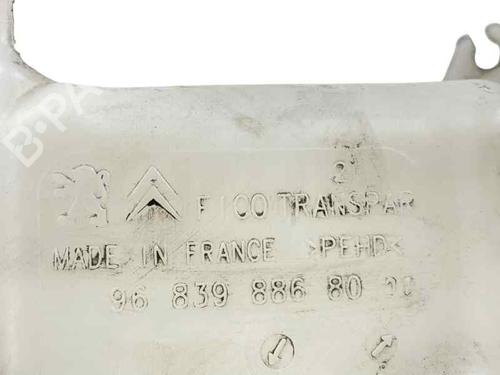 B-PA
2
FICO TRANSPAR
MADE IN FRANCE >PEHD<
96 839 886 80